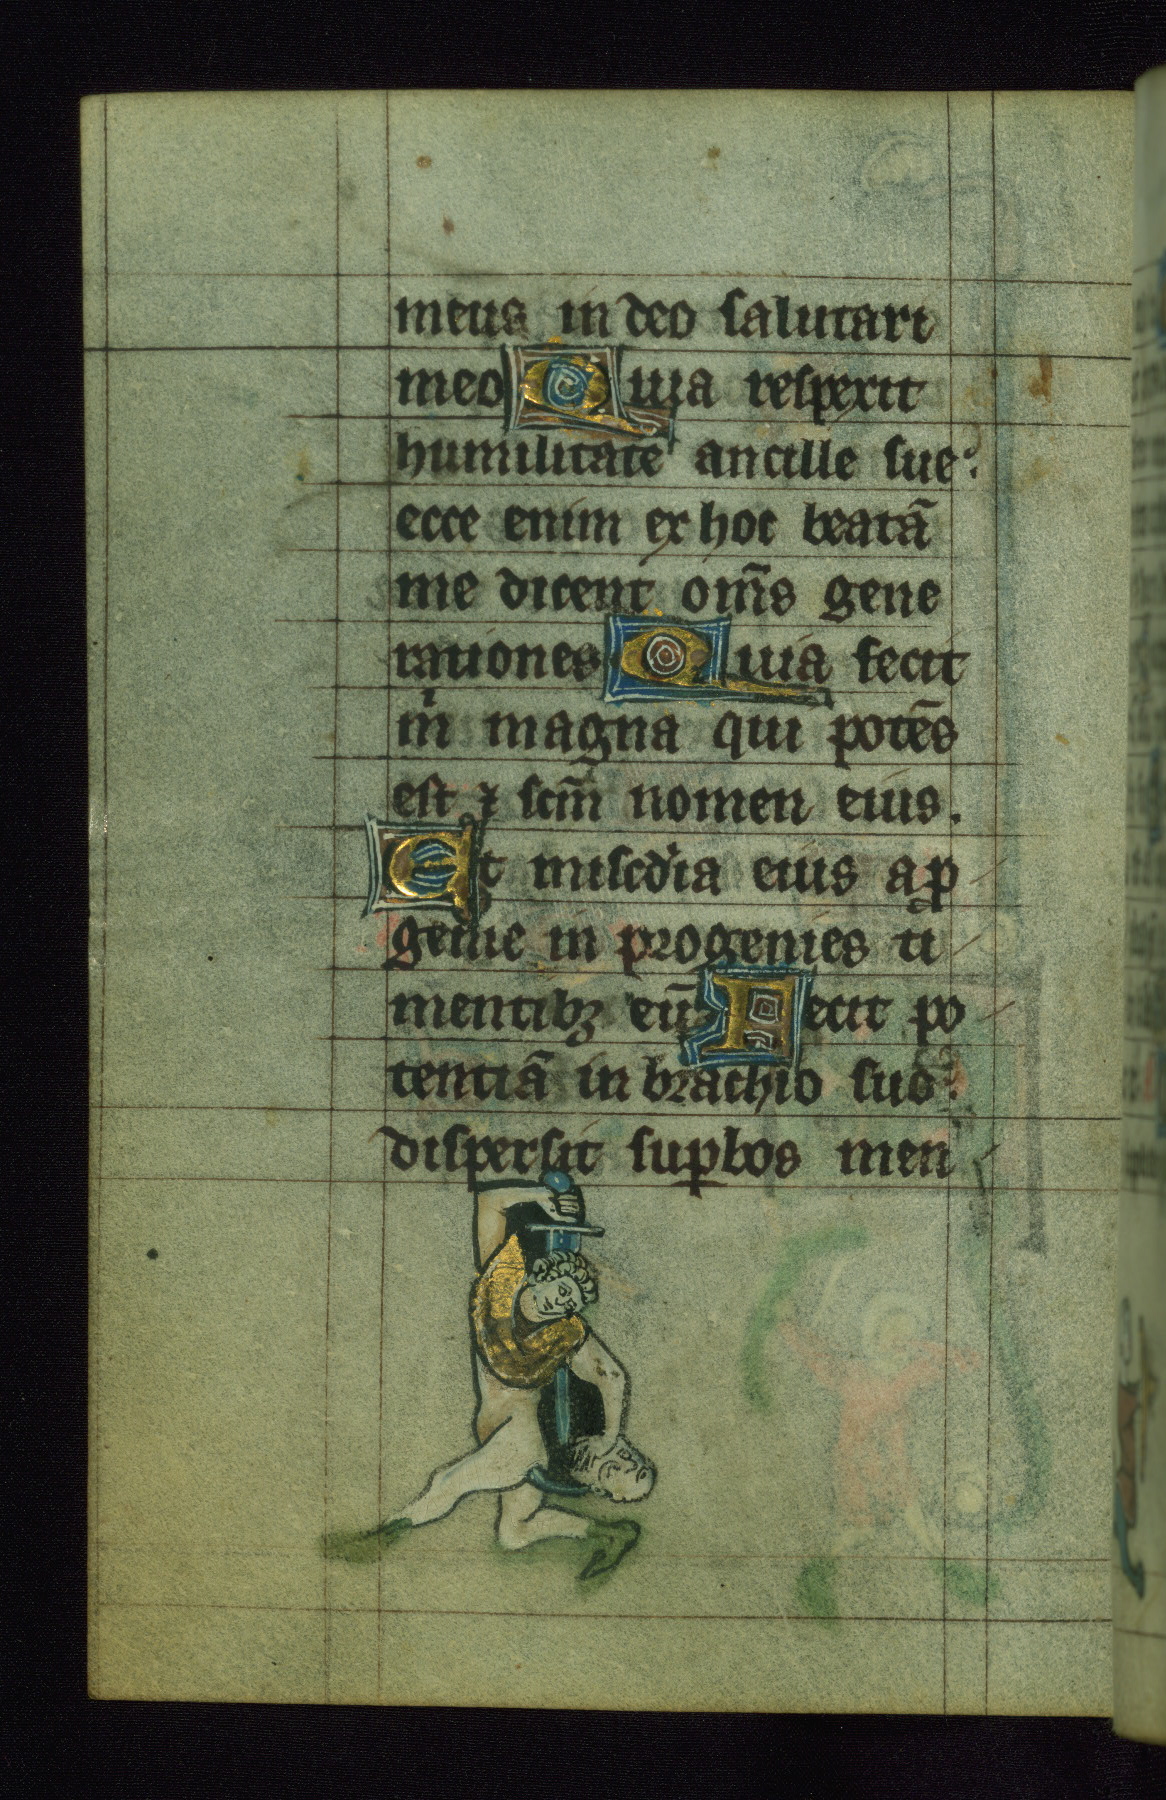 meus in deo salutari
meo Quia respexit
humilitatē ancille sue:
ecce enim ex hoc beatā
me dicent om̄s gene
rationes Quia fecit
m̍ magna qui potēs
est ⁊ scm̄ nomen eius.
Et misc̄dia eius a ꝓ
genie in progenies ti
mentibꝫ eū Fecit po
tentiā in brachio suo:
dispersit suꝑbos men